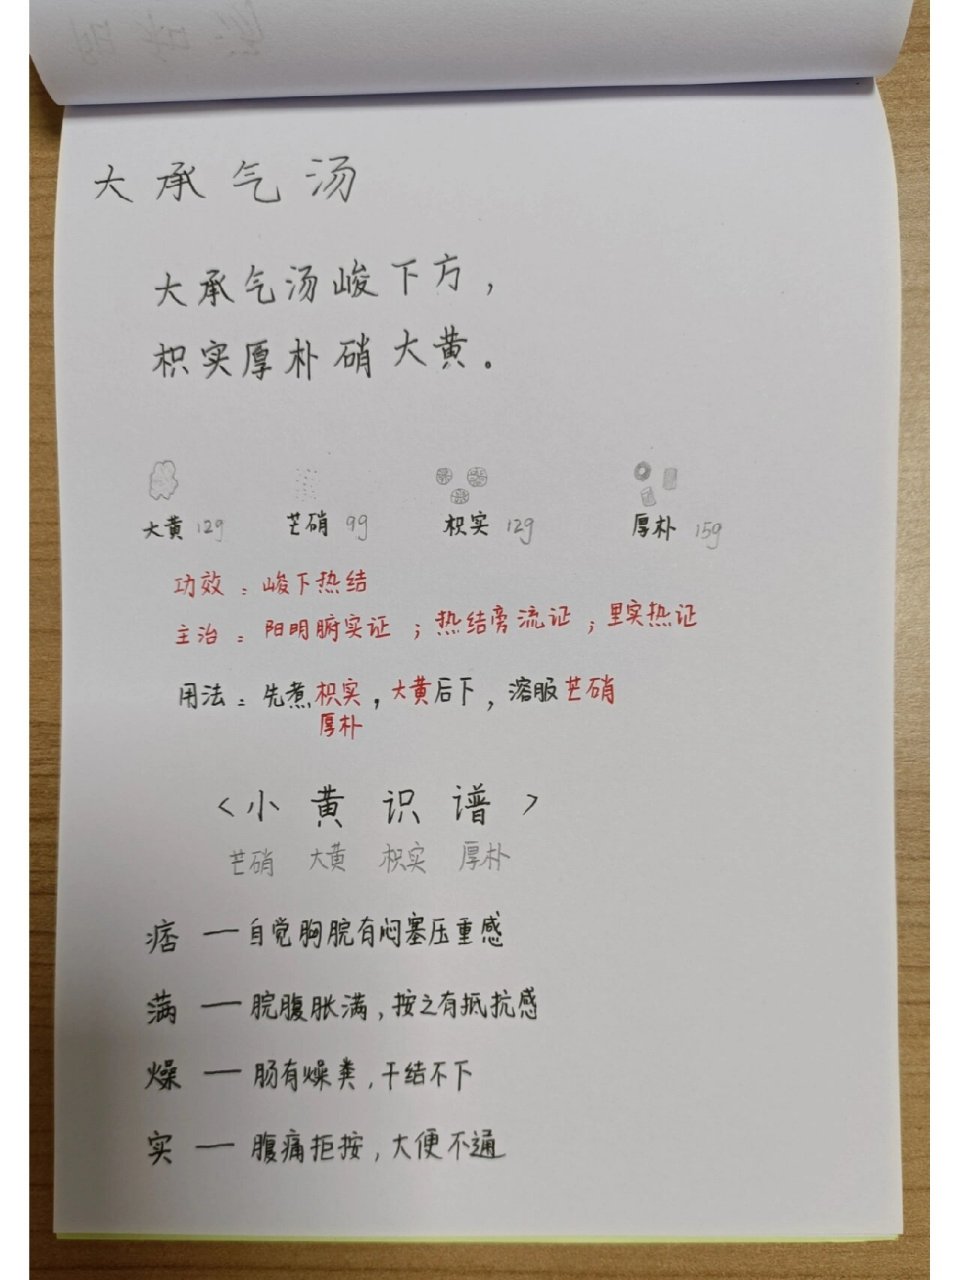 大承气汤
大承气汤峻下方，
枳实厚朴硝大黄。
大黄 12g 芒硝 9g 枳实 12g 厚朴 15g
功效：峻下热结
主治：阳明腑实证；热结旁流证；里实热证
用法：先煮枳实，大黄后下，溶服芒硝
厚朴
<小黄识谱>
芒硝 大黄 枳实 厚朴
痞 — 自觉胸脘有闷塞压重感
满 — 脘腹胀满，按之有抵抗感
燥 — 肠有燥粪，干结不下
实 — 腹痛拒按，大便不通